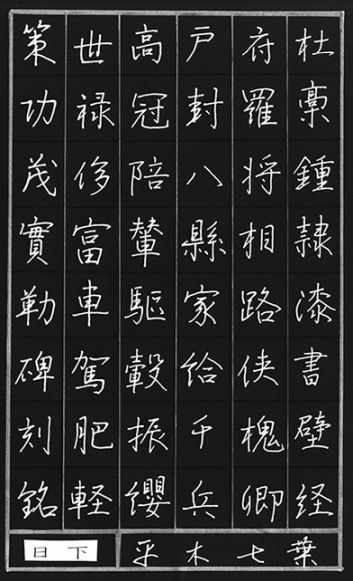 杜稾鍾隷漆書壁経
府羅将相路侠槐卿
戸封八縣家給千兵
高冠陪輦驅轂振纓
世禄侈富車駕肥軽
策功茂實勒碑刻銘
葉七木平
下日